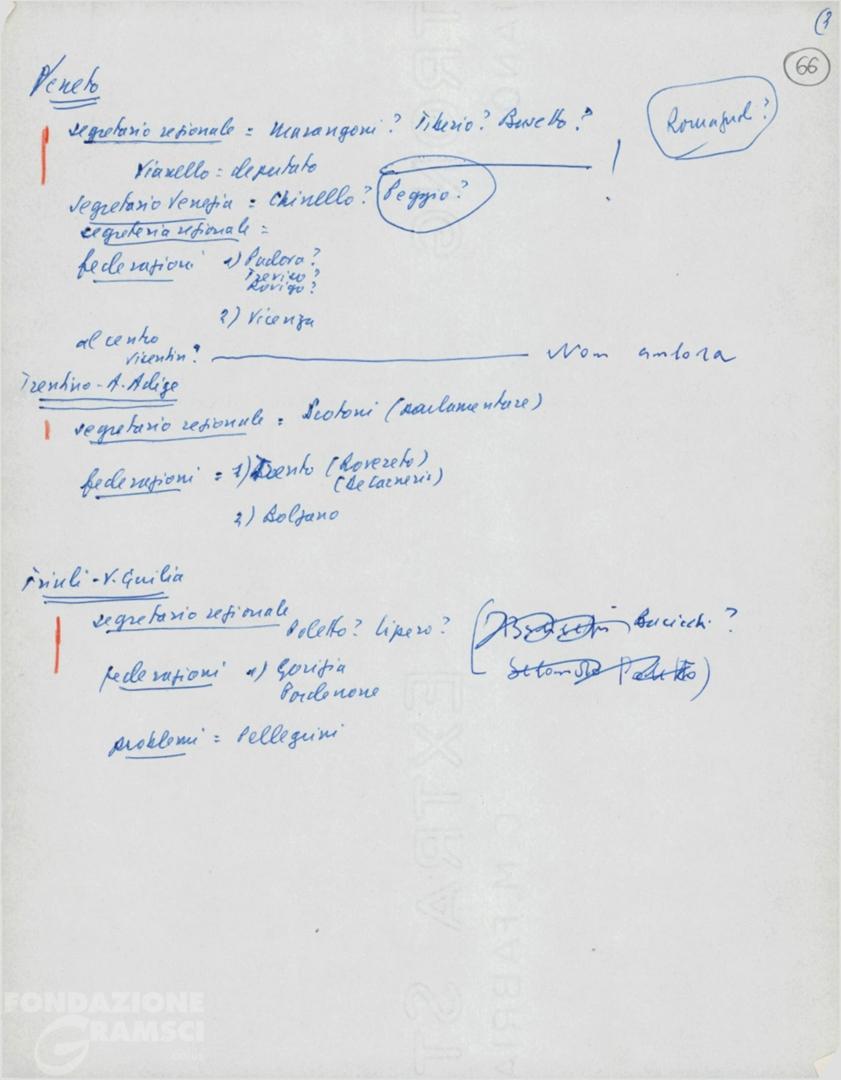 (3
66
Veneto
segretario regionale = Marangoni? Tiberio? Busetto?
Romagnoli?
Vianello = deputato
segretario Venezia = Chinello? Peggio?
segreteria regionale =
federazioni 1) Padova?
Treviso?
Rovigo?
2) Vicenza
al centro
Vicentin? Non ancora
Trentino-A. Adige
segretario regionale = Scotoni (parlamentare)
federazioni = 1) Trento (Rovereto)
(De Carneris)
2) Bolzano
Friuli-V. Giulia
segretario regionale Poletto? Lipero? Bacicchi?
federazioni 1) Gorizia
Pordenone
problemi = Pellegrini
FONDAZIONE
GRAMSCI